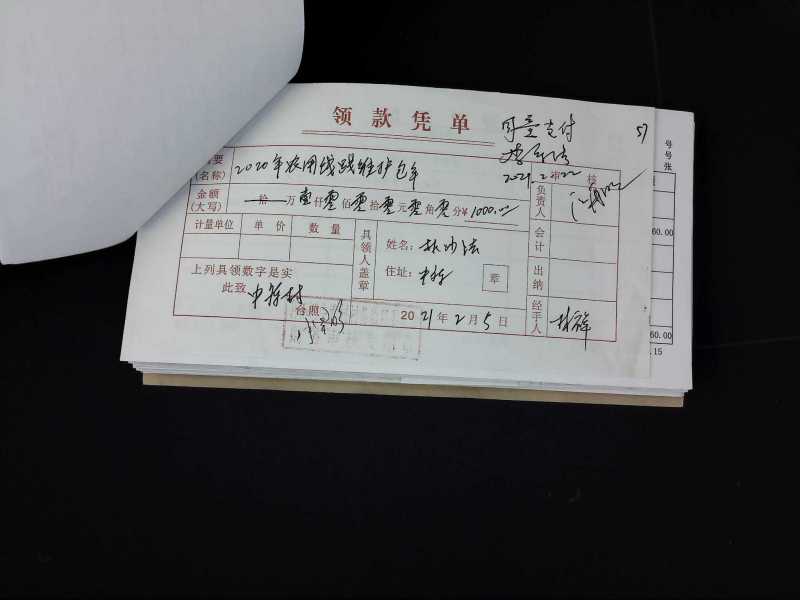 领款凭单
同意支付
57
2021.2.22
审核
摘要
(名称)
2020年农用线路维护包年
金额
(大写)
拾万壹仟零佰零拾零元零角零分¥1000.00
负责人
计量单位 单价 数量
具领人盖章
姓名:
会计
住址:
章
出纳
上列具领数字是实
此致
台照
2021年2月5日
经手人
号
号
张
60.00
60.00
.15